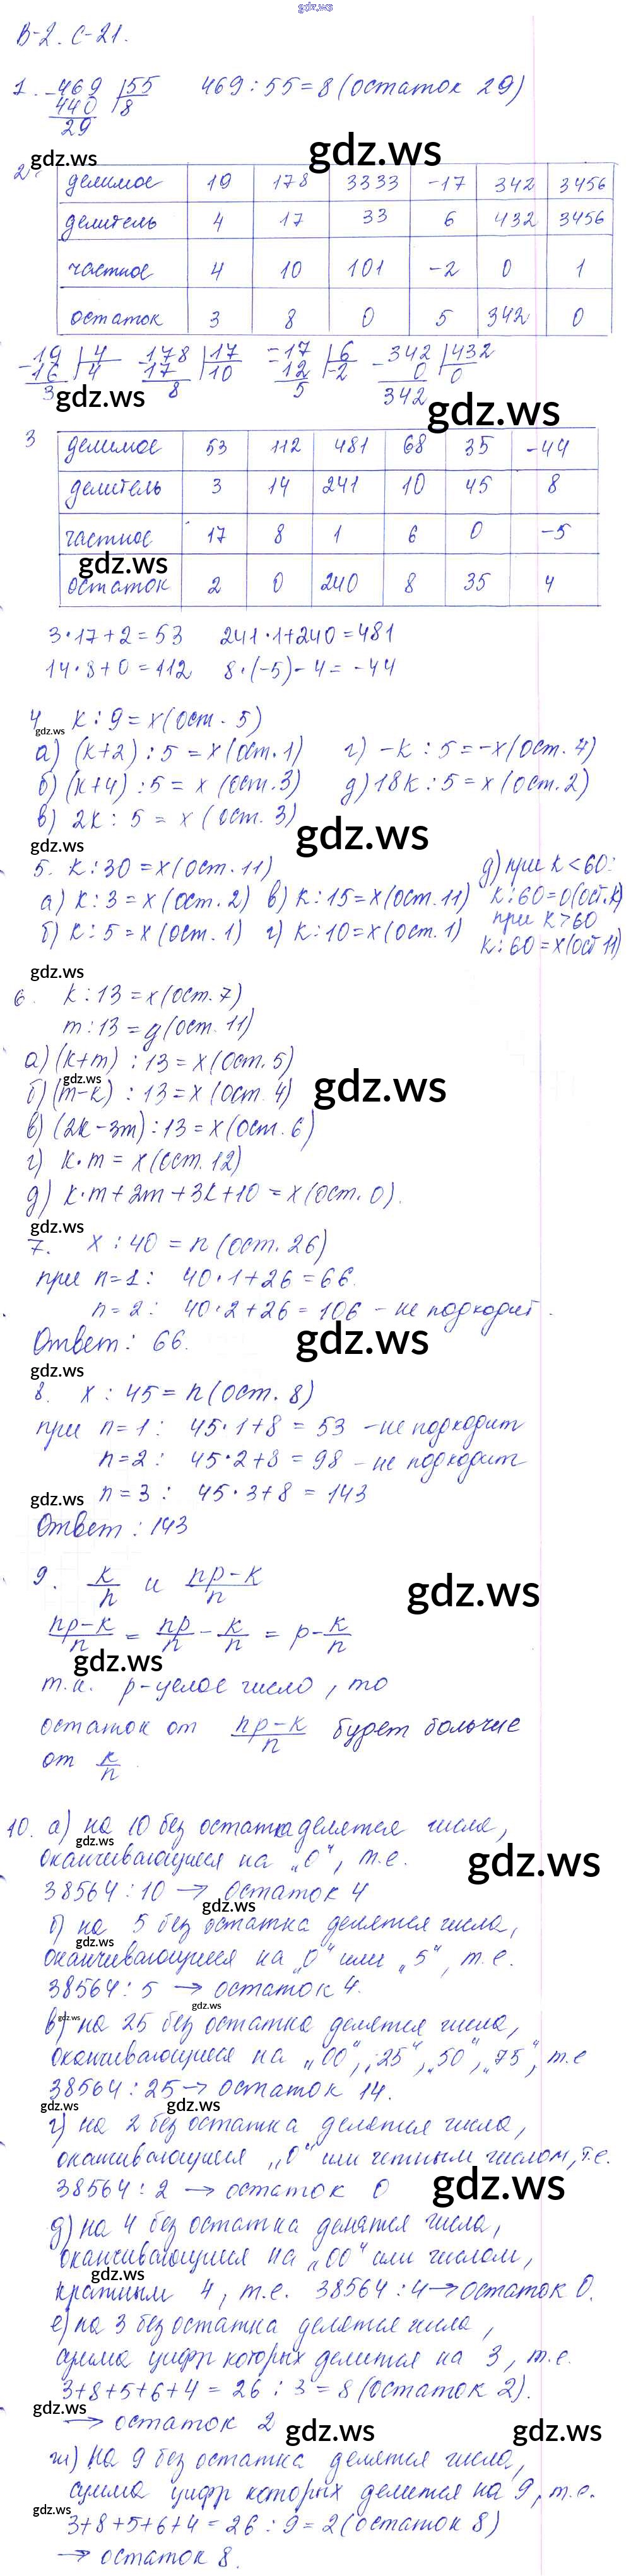 gdz.ws
В-2. С-21.
1. -469 |55 469 : 55 = 8 (остаток 29)
440 8
29
gdz.ws
gdz.ws
2.
делимое 19 178 3333 -17 342 3456
делитель 4 17 33 6 432 3456
частное 4 10 101 -2 0 1
остаток 3 8 0 5 342 0
-19 |4 -178 |17 -17 |6 -342 |432
16 4 17 10 12 -2 0 0
3 8 5 342
gdz.ws
gdz.ws
3
делимое 53 112 481 68 35 -44
делитель 3 14 241 10 45 8
частное 17 8 1 6 0 -5
gdz.ws
остаток 2 0 240 8 35 4
3·17+2=53 241·1+240=481
14·8+0=112 8·(-5)-4=-44
4. k : 9 = x (ост. 5)
gdz.ws
а) (k+2) : 5 = x (ост. 1) г) -k : 5 = -x (ост. 4)
б) (k+4) : 5 = x (ост. 3) д) 18k : 5 = x (ост. 2)
в) 2k : 5 = x (ост. 3)
gdz.ws
gdz.ws
5. k : 30 = x (ост. 11) д) при k < 60:
а) k : 3 = x (ост. 2) в) k : 15 = x (ост. 11) k : 60 = 0 (ост. k)
при k > 60
б) k : 5 = x (ост. 1) г) k : 10 = x (ост. 1) k : 60 = x (ост 11)
gdz.ws
6. k : 13 = x (ост. 7)
m : 13 = y (ост. 11)
а) (k+m) : 13 = x (ост. 5)
gdz.ws
gdz.ws
б) (m-k) : 13 = x (ост. 4)
в) (2k-3m) : 13 = x (ост. 6)
г) k·m = x (ост. 12)
д) k·m + 2m + 3k + 10 = x (ост. 0).
gdz.ws
7. x : 40 = n (ост. 26)
при n=1 : 40·1+26 = 66.
n=2 : 40·2+26 = 106 - не подходит.
Ответ: 66.
gdz.ws
gdz.ws
8. x : 45 = n (ост. 8)
при n=1 : 45·1+8 = 53 - не подходит
n=2 : 45·2+8 = 98 - не подходит
gdz.ws
n=3 : 45·3+8 = 143
Ответ : 143
9. k/n и np-k/n
gdz.ws
np-k/n = np/n - k/n = p - k/n
gdz.ws
т.к. p - целое число, то
остаток от np-k/n будет больше
от k/n.
10. а) на 10 без остатка делятся числа,
gdz.ws
gdz.ws
оканчивающиеся на „0“, т.е.
38564 : 10 → остаток 4
gdz.ws
б) на 5 без остатка делятся числа,
gdz.ws
оканчивающиеся на „0“ или „5“, т.е.
38564 : 5 → остаток 4.
gdz.ws
gdz.ws
в) на 25 без остатка делятся числа,
оканчивающиеся на „00“, „25“, „50“, „75“, т.е
38564 : 25 → остаток 14.
gdz.ws
gdz.ws
г) на 2 без остатка делятся числа,
оканчивающиеся „0“ или четным числом, т.е.
38564 : 2 → остаток 0
gdz.ws
д) на 4 без остатка делятся числа,
оканчивающиеся на „00“ или числом,
gdz.ws
кратным 4, т.е. 38564 : 4 → остаток 0.
е) на 3 без остатка делятся числа,
сумма цифр которых делится на 3, т.е.
3+8+5+6+4 = 26 : 3 = 8 (остаток 2).
gdz.ws
→ остаток 2
gdz.ws
gdz.ws
ж) на 9 без остатка делятся числа,
сумма цифр которых делится на 9, т.е.
gdz.ws
3+8+5+6+4 = 26 : 9 = 2 (остаток 8)
→ остаток 8.